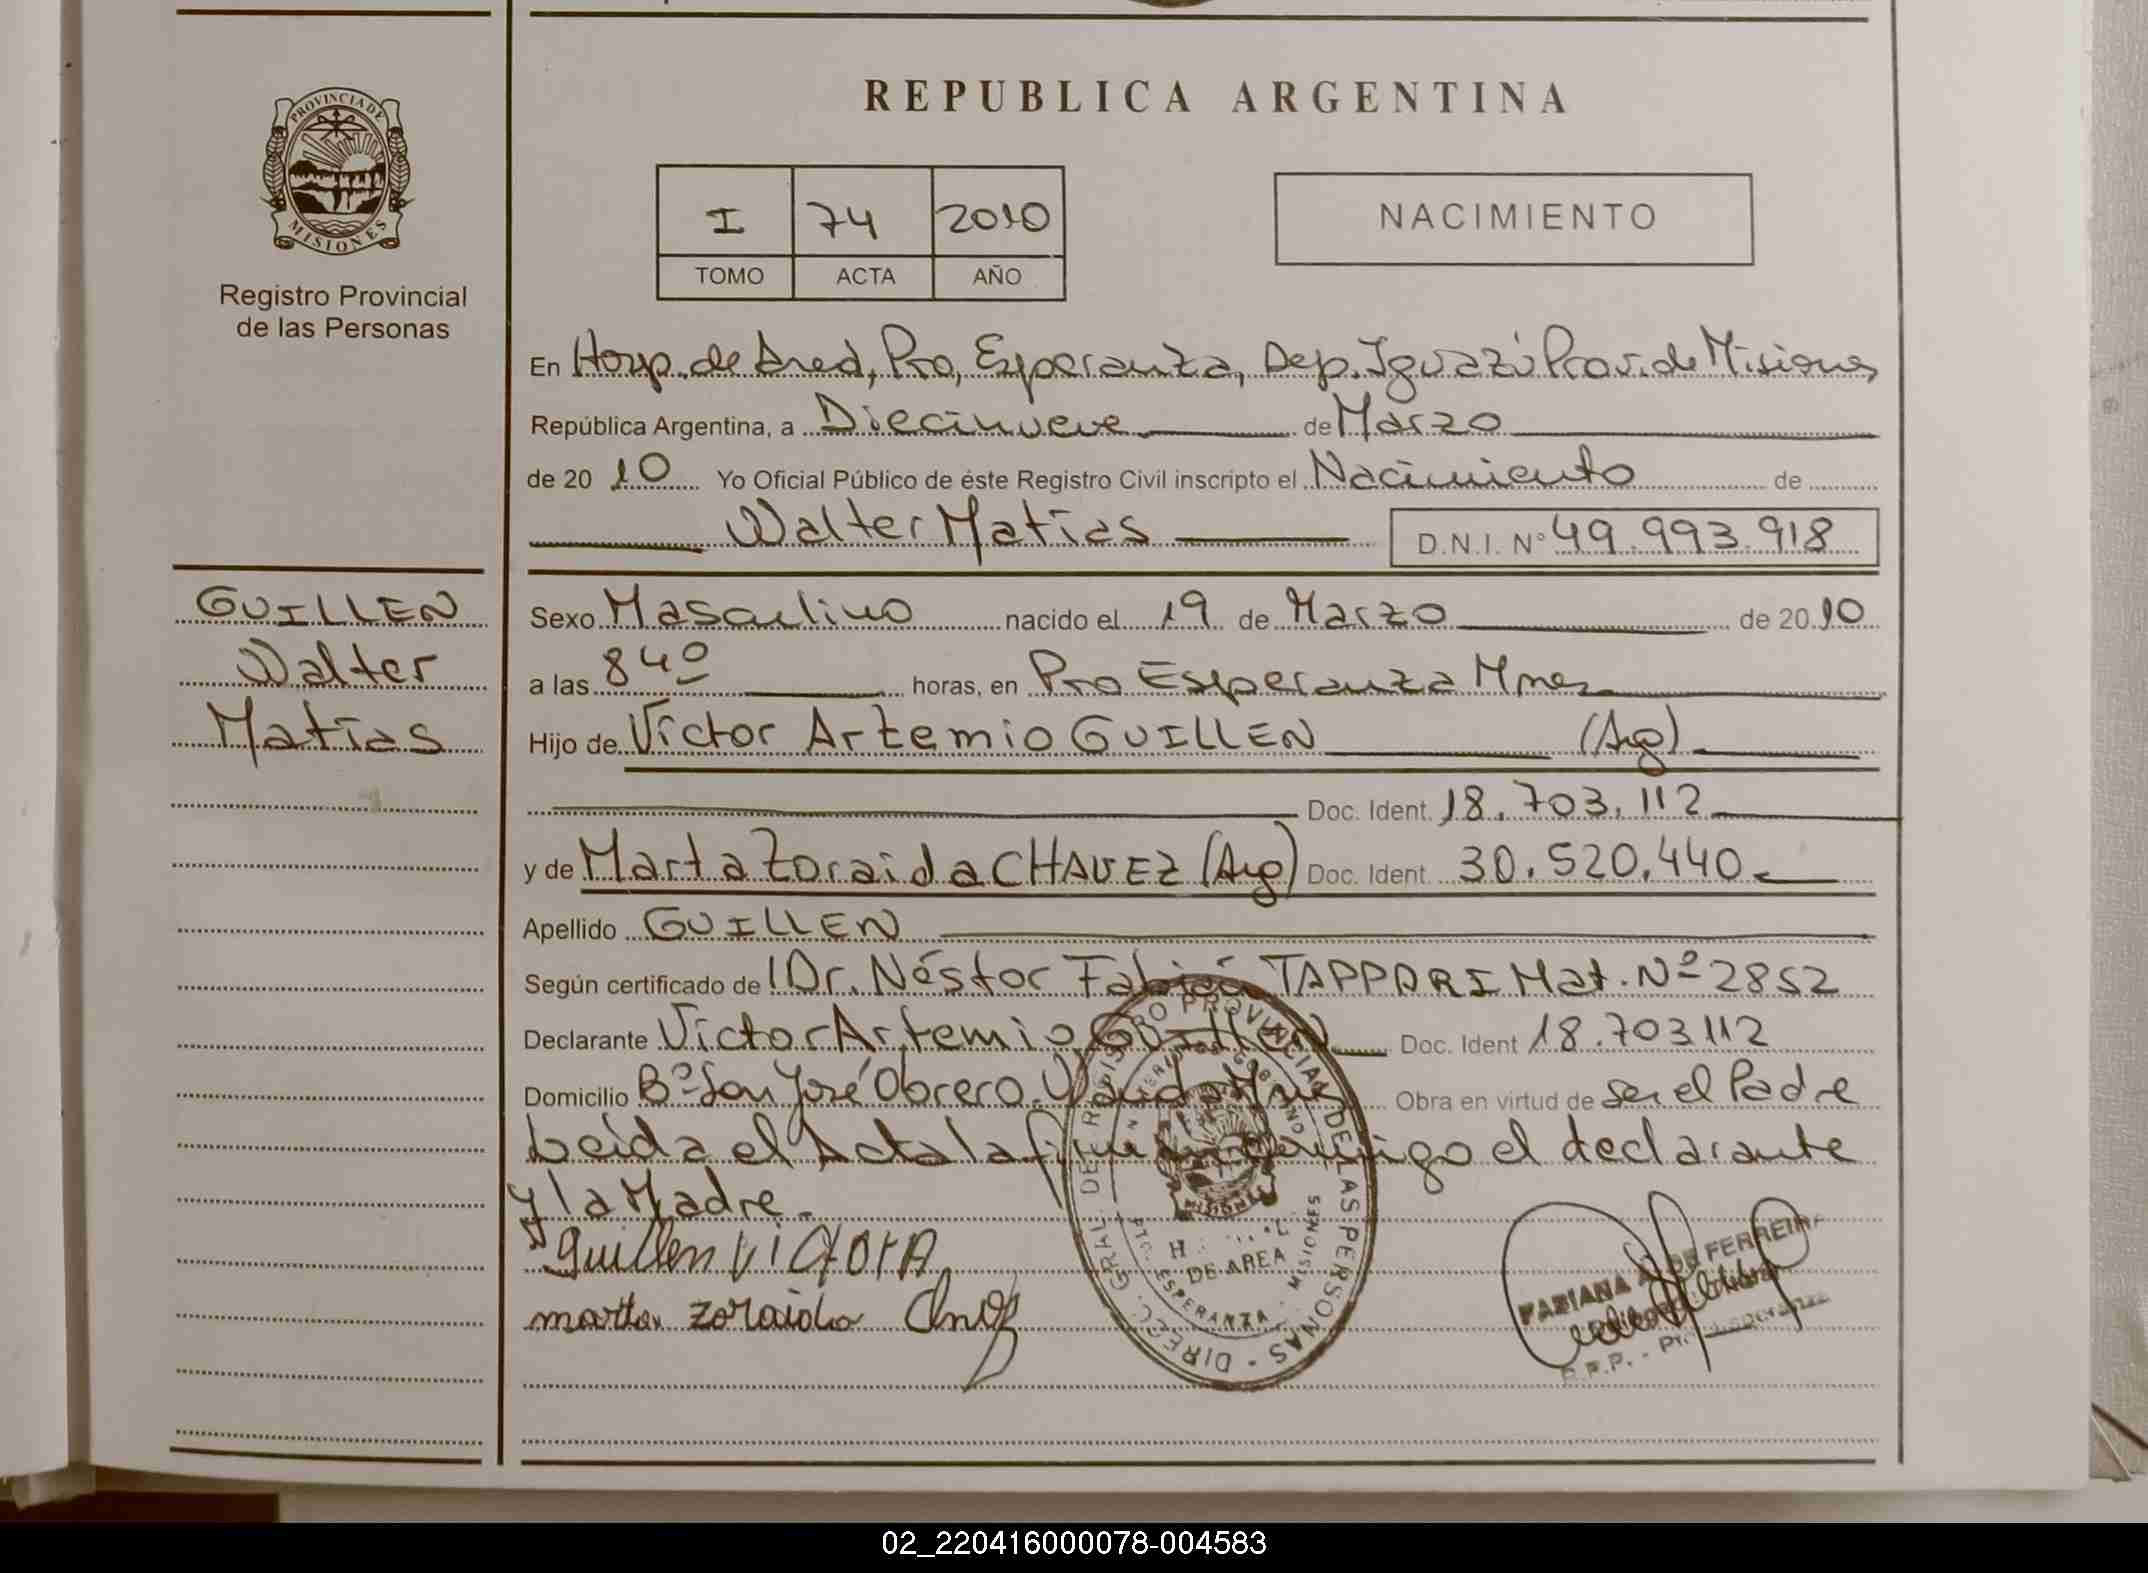 PROVINCIA DE
MISIONES
Registro Provincial
de las Personas
GUILLEN
Walter
Matías
REPUBLICA ARGENTINA
I 74 2010
TOMO ACTA AÑO
NACIMIENTO
En Hosp. de Area, Pto, Esperanza, Dep. Iguazú Prov. de Misiones
República Argentina, a Diecinueve de Marzo
de 20 10 Yo Oficial Público de éste Registro Civil inscripto el Nacimiento de
Walter Matías D.N.I. N° 49.993.918
Sexo Masculino nacido el 19 de Marzo de 20 10
a las 8 40 horas, en Pto Esperanza Mnes
Hijo de Víctor Artemio GUILLEN (Arg)
Doc. Ident. 18.703.112
y de Marta Zoraida CHAVEZ (Arg) Doc. Ident. 30.520.440
Apellido GUILLEN
Según certificado de Dr. Néstor TAPPARI Mat. Nº 2852
Declarante Víctor Artemio Guillen Doc. Ident 18.703112
Domicilio Bº San José Obrero Obra en virtud de ser el Padre
Leida el Acta la conmigo el declarante
y la Madre.
Guillen Victor A
marta zoraida
DIREC. GRAL. DE REGISTRO PROVINCIAL DE LAS PERSONAS
DE AREA
PTO. ESPERANZA - MISIONES
MISIONES
FABIANA DE FERREIRA
R.P.P. - Pto. Esperanza
02_220416000078-004583